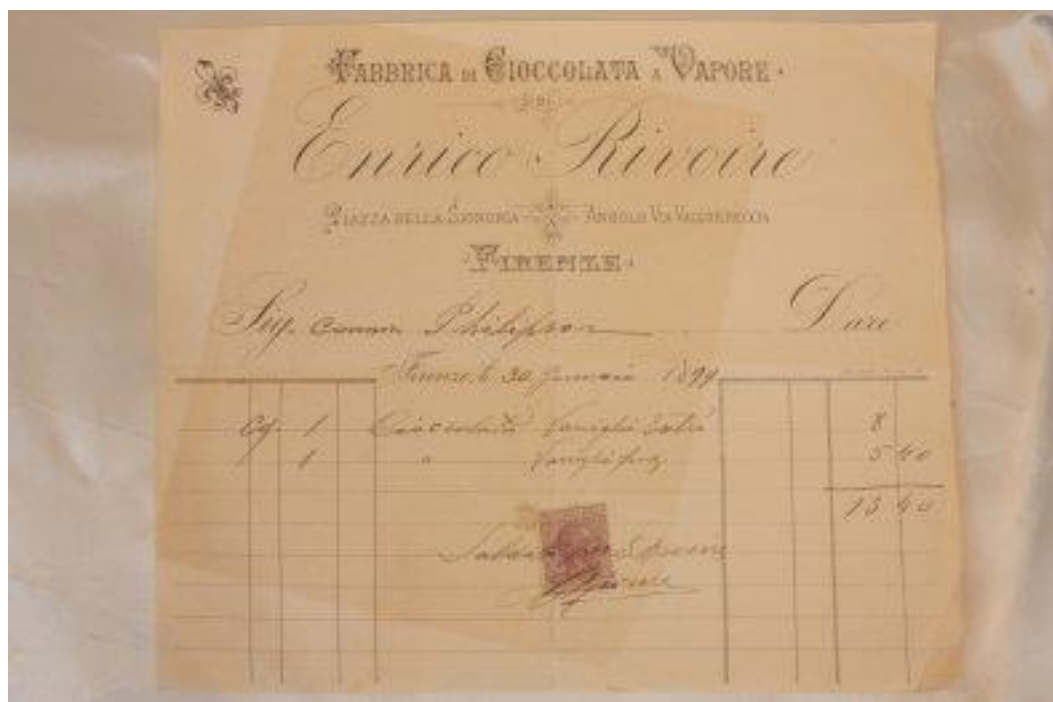 FABBRICA DI CIOCCOLATA A VAPORE
DI
Enrico Rivoire
PIAZZA DELLA SIGNORIA ANGOLO VIA VACCHERECCIA
FIRENZE
Sig. Comm. Philipson Dare
Firenze, li 30 Gennaio 1899
Cg. 1 Cioccolata Vaniglia 8
1 " Vaniglia 5 40
13 40